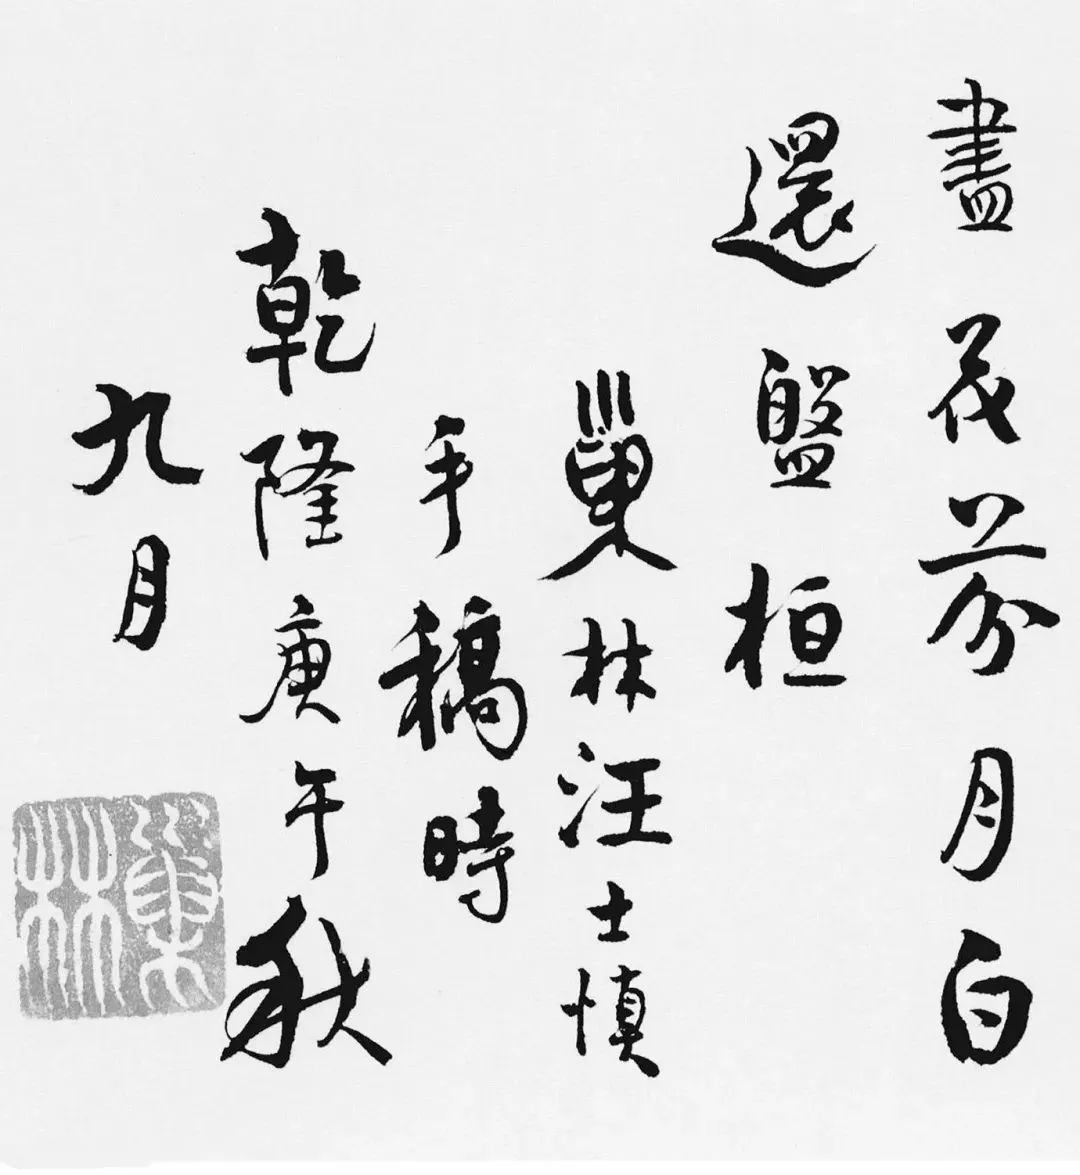 盡茂芬月白
還盤桓
巢林汪士慎
手稿時
乾隆庚午秋
九月
巢林